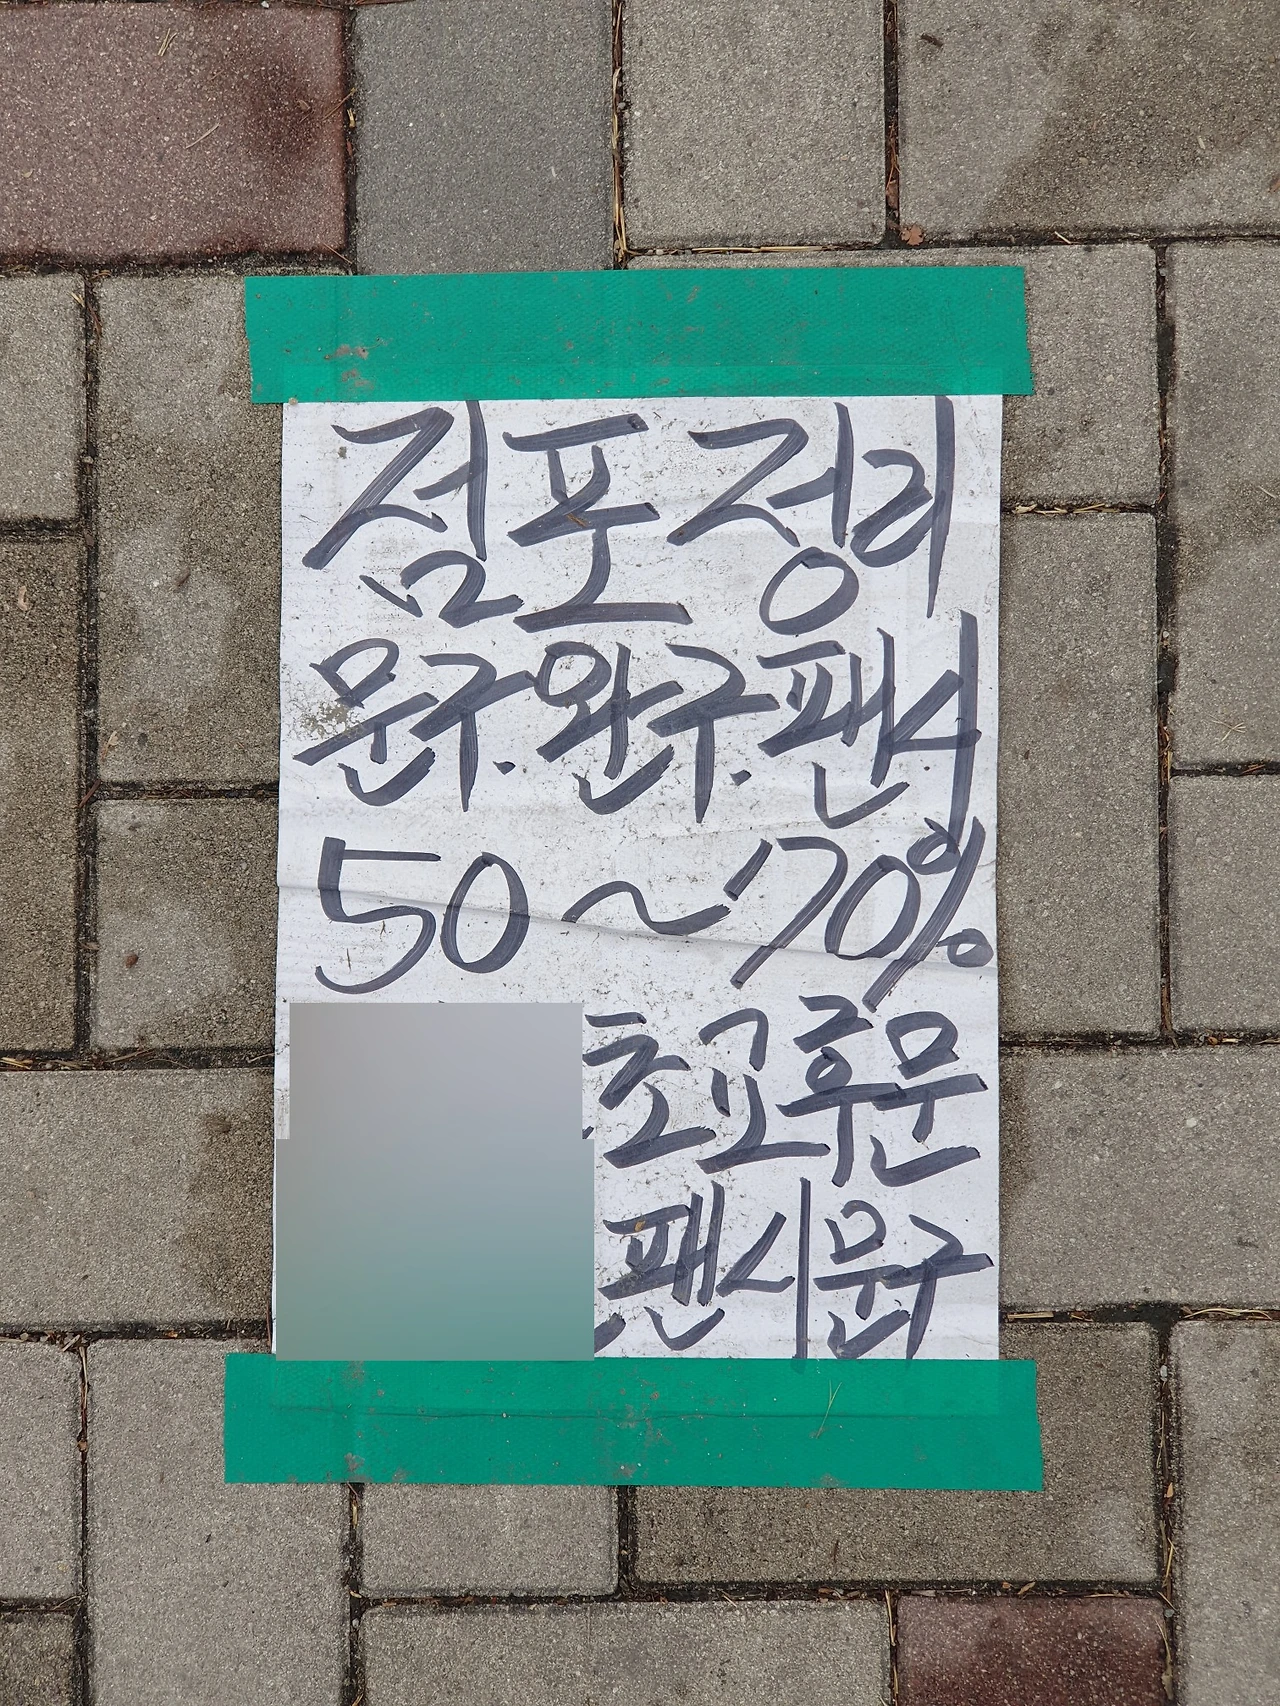 점포정리
문구.완구.팬시
50~70%
초교후문
팬시문구